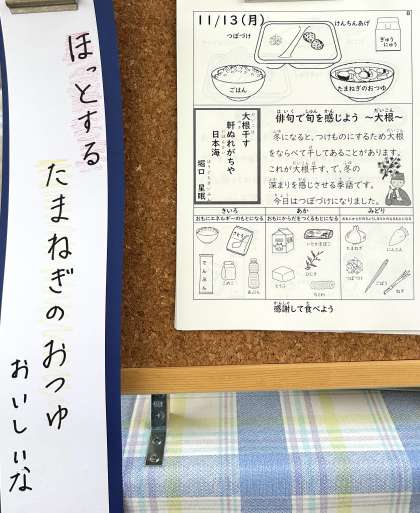 ほっとする
たまねぎのおつゆ
おいしいな
11/13(月)
つぼづけ
けんちんあげ
ぎゅうにゅう
ごはん
たまねぎのおつゆ
大根干す
軒ぬれがちや
日本海
堀口 星眠
俳句で旬を感じよう ～大根～
冬になると、つけものにするため大根
をならべて干してあることがあります。
これが大根干す、で、冬の
深まりを感じさせる季語です。
今日はつぼづけになりました。
きいろ
おもにエネルギーのもとになる
あか
おもにからだをつくるもとになる
みどり
でんぷん
こめこ
あぶら
とうふ
ひじき
ちくわ
たまねぎ
にんじん
つぼづけ
ごぼう
ねぎ
感謝して食べよう